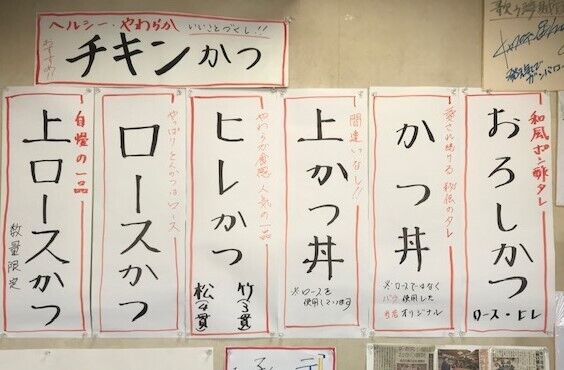 ヘルシー・やわらか
いいことづくし!!
チキンかつ
和風ポン酢タレ
おろしかつ
ロース・ヒレ
愛され続ける 秘伝のタレ
かつ丼
※ロースではなく
バラ使用した
当店オリジナル
間違いなし!!
上かつ丼
※ロースを
使用しています
やわらか食感 人気の一品
ヒレかつ
竹(3貫)
松(4貫)
やっぱりとんかつはロース
ロースかつ
自慢の一品
上ロースかつ
数量限定